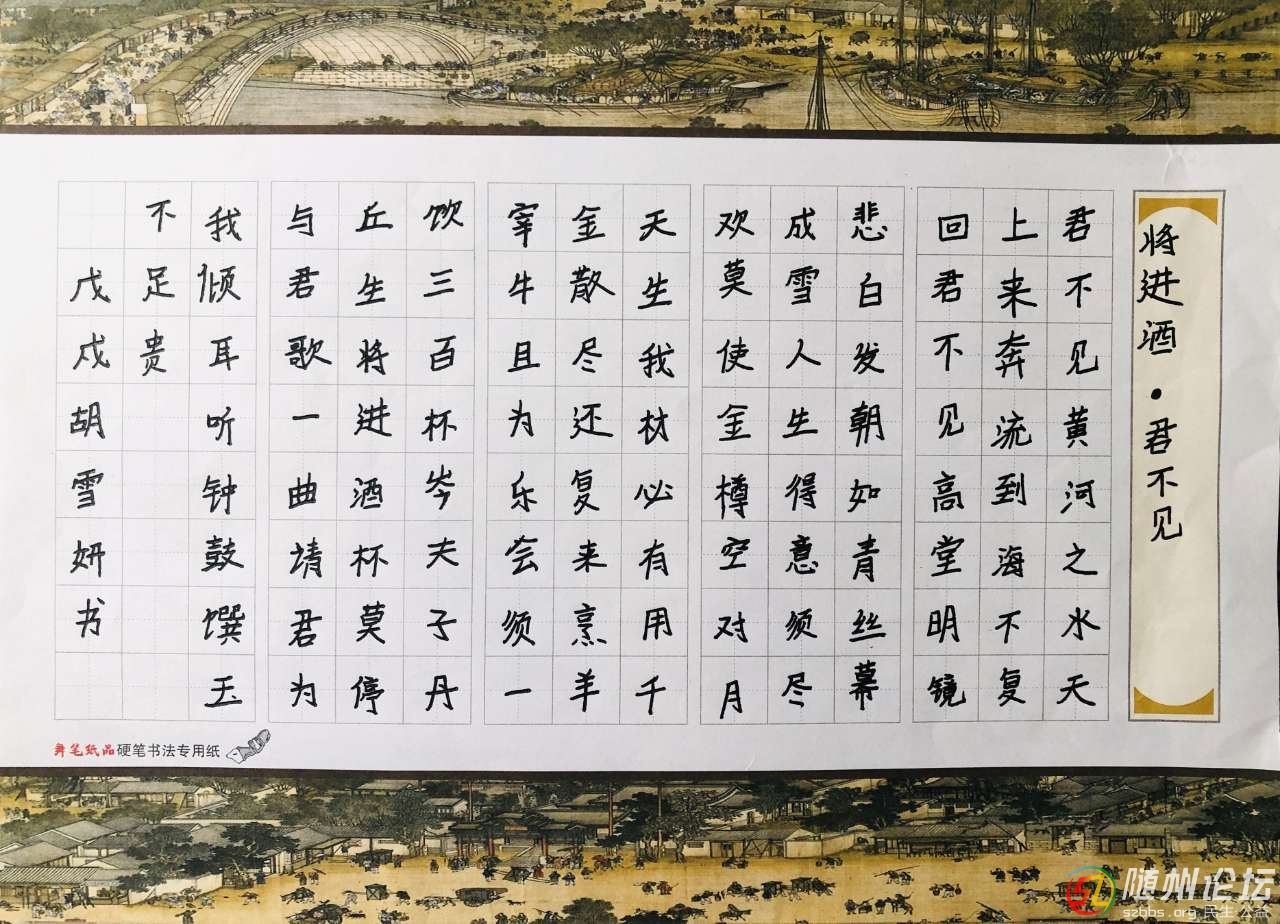 将进酒·君不见
君不见黄河之水天
上来奔流到海不复
回君不见高堂明镜
悲白发朝如青丝幕
成雪人生得意须尽
欢莫使金樽空对月
天生我材必有用千
金散尽还复来烹羊
宰牛且为乐会须一
饮三百杯岑夫子丹
丘生将进酒杯莫停
与君歌一曲请君为
我倾耳听钟鼓馔玉
不足贵
戊戌胡雪妍书
舞笔纸品硬笔书法专用纸
随州论坛
szbbs.org 民生 公益